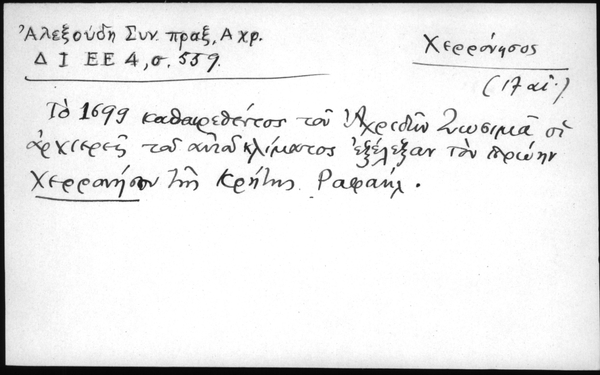 Ἀλεξούδη Συν. πραξ, Α χρ.
Δ Ι ΕΕ 4, σ. 559.
Χερρόνησος
(17 αἰ.)
Τὸ 1699 καθαιρεθέντος τοῦ Ἀχριδῶν Ζωσιμᾶ οἱ
ἀρχιερεῖς τοῦ αὐτοῦ κλίματος ἐξέλεξαν τὸν πρώην
Χερρονήσου τῆς Κρήτης Ραφαήλ.